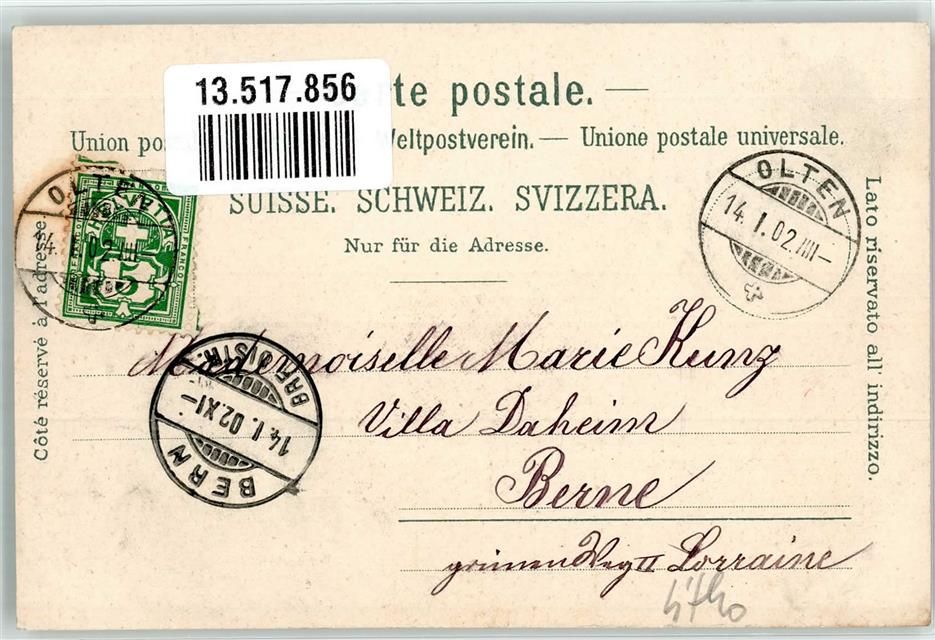 13.517.856
rte postale. —
Union pos
Weltpostverein. — Unione postale universale.
SUISSE. SCHWEIZ. SVIZZERA.
Nur für die Adresse.
Côté réservé à l'adresse.
Lato riservato all' indirizzo.
HELVETIA
FRANCO
5
OLTEN
14. I. 02. III
OLTEN
14. I. 02. III –
BRF. DISTR.
14. I. 02. XI –
BERN
Mademoiselle Marie Kunz
Villa Daheim
Berne
grünen Weg II Lorraine